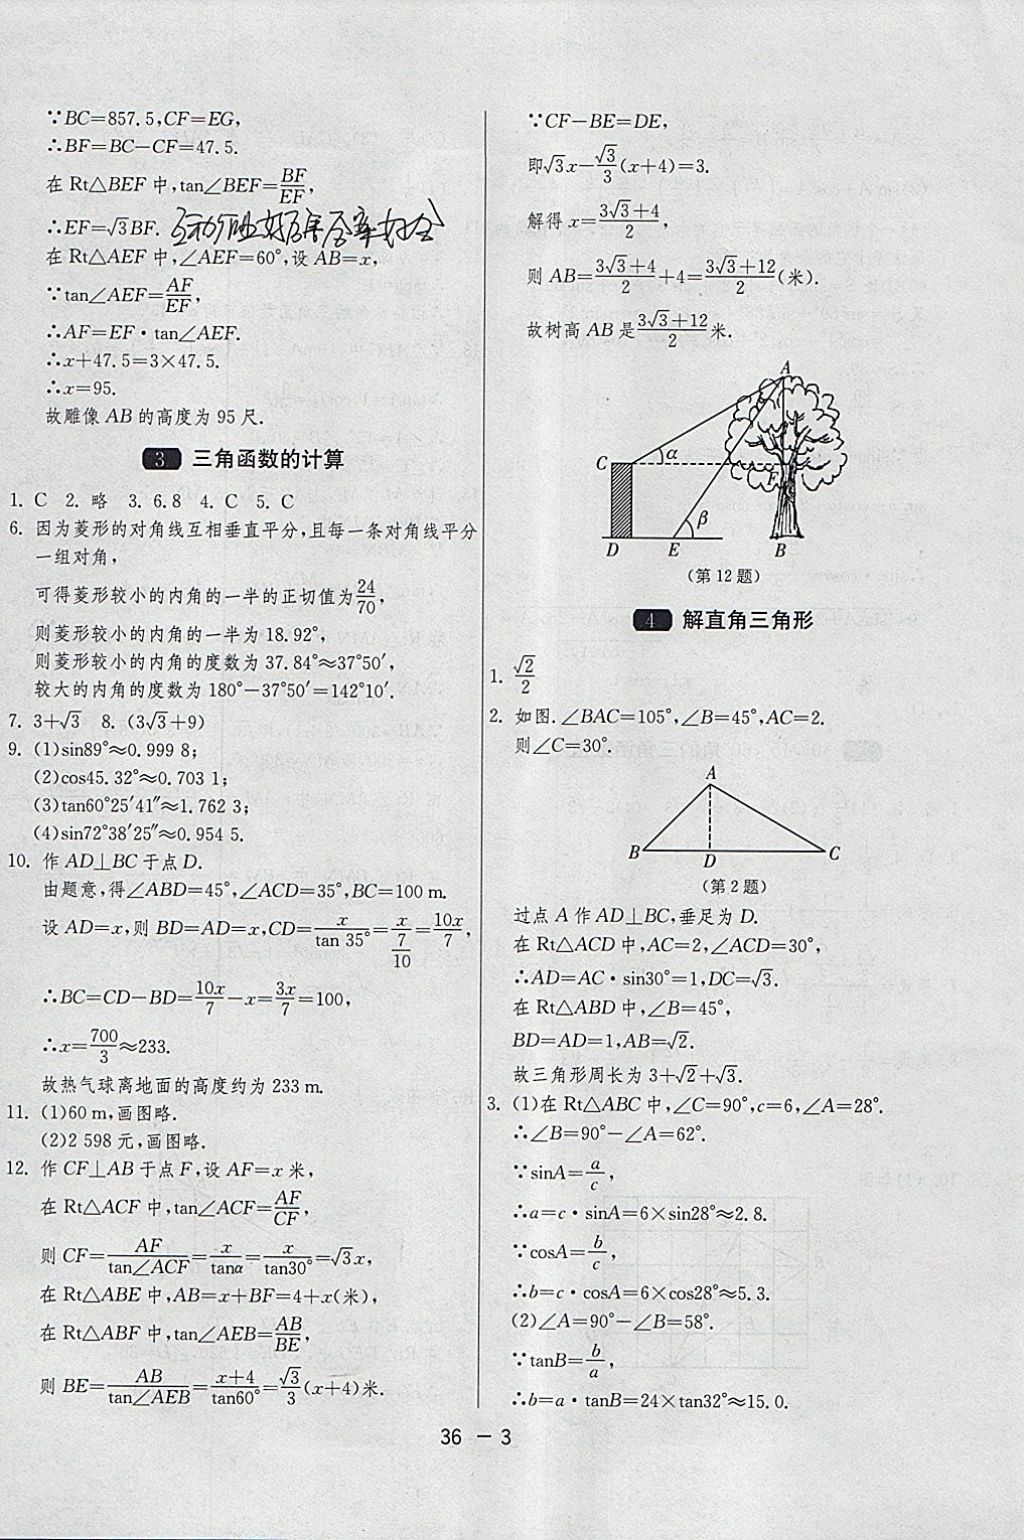 ∵BC=857.5,CF=EG,
∴BF=BC−CF=47.5.
在 Rt△BEF 中,tan∠BEF=BF/EF,
∴EF=√3BF.
在 Rt△AEF 中,∠AEF=60°,设 AB=x,
∵tan∠AEF=AF/EF,
∴AF=EF·tan∠AEF.
∴x+47.5=3×47.5.
∴x=95.
故雕像 AB 的高度为 95 尺.
3 三角函数的计算
1. C 2. 略 3. 6.8 4. C 5. C
6. 因为菱形的对角线互相垂直平分,且每一条对角线平分
一组对角,
可得菱形较小的内角的一半的正切值为24/70,
则菱形较小的内角的一半为 18.92°,
则菱形较小的内角的度数为 37.84°≈37°50′,
较大的内角的度数为 180°−37°50′=142°10′.
7. 3+√3 8. (3√3+9)
9. (1)sin89°≈0.999 8;
(2)cos45.32°≈0.703 1;
(3)tan60°25′41″≈1.762 3;
(4)sin72°38′25″≈0.954 5.
10. 作 AD⊥BC 于点 D.
由题意,得∠ABD=45°,∠ACD=35°,BC=100 m.
设 AD=x,则 BD=AD=x,CD=x/tan 35°=x/(7/10)=10x/7,
∴BC=CD−BD=10x/7−x=3x/7=100,
∴x=700/3≈233.
故热气球离地面的高度约为 233 m.
11. (1)60 m,画图略.
(2)2 598 元,画图略.
12. 作 CF⊥AB 于点 F,设 AF=x 米,
在 Rt△ACF 中,tan∠ACF=AF/CF,
则 CF=AF/tan∠ACF=x/tanα=x/tan30°=√3x,
在 Rt△ABE 中,AB=x+BF=4+x(米),
在 Rt△ABF 中,tan∠AEB=AB/BE,
则 BE=AB/tan∠AEB=(x+4)/tan60°=√3/3(x+4)米.
∵CF−BE=DE,
即√3x−√3/3(x+4)=3.
解得 x=(3√3+4)/2,
则 AB=(3√3+4)/2+4=(3√3+12)/2(米).
故树高 AB 是(3√3+12)/2米.
A
C
α
F
β
D E B
(第12题)
4 解直角三角形
1. √2/2
2. 如图.∠BAC=105°,∠B=45°,AC=2.
则∠C=30°.
A
B D C
(第2题)
过点 A 作 AD⊥BC,垂足为 D.
在 Rt△ACD 中,AC=2,∠ACD=30°,
∴AD=AC·sin30°=1,DC=√3.
在 Rt△ABD 中,∠B=45°,
BD=AD=1,AB=√2.
故三角形周长为 3+√2+√3.
3. (1)在 Rt△ABC 中,∠C=90°,c=6,∠A=28°.
∴∠B=90°−∠A=62°.
∵sinA=a/c,
∴a=c·sinA=6×sin28°≈2.8.
∵cosA=b/c,
∴b=c·cosA=6×cos28°≈5.3.
(2)∠A=90°−∠B=58°.
∵tanB=b/a,
∴b=a·tanB=24×tan32°≈15.0.
36 − 3